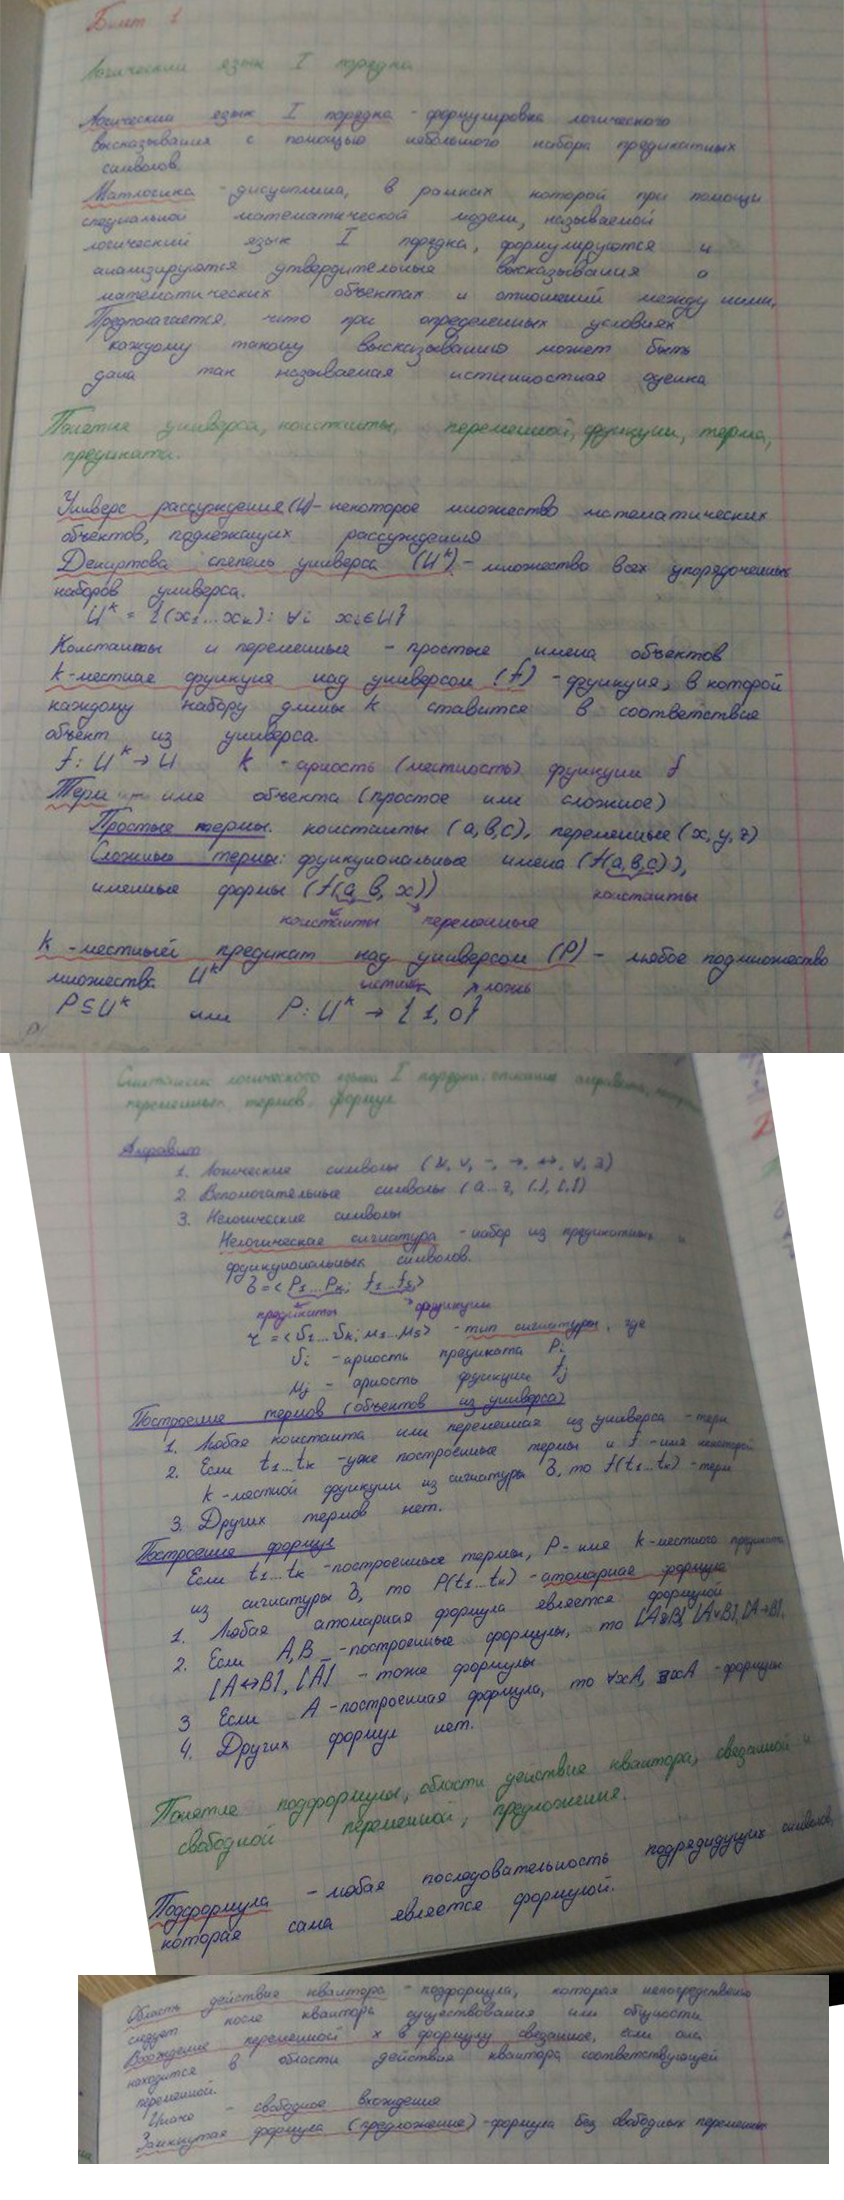 Билет 1
Логический язык I порядка
Логический язык I порядка - формулировка логического
высказывания с помощью небольшого набора предикатных
символов.
Матлогика - дисциплина, в рамках которой при помощи
специальной математической модели, называемой
логический язык I порядка, формулируются и
анализируются утвердительные высказывания о
математических объектах и отношений между ними.
Предполагается, что при определенных условиях
каждому такому высказыванию может быть
дана так называемая истинностная оценка
Понятие универса, константы, переменной, функции, терма,
предиката.
Универс рассуждения (U) - некоторое множество математических
объектов, подлежащих рассуждению
Декартова степень универса (U^k) - множество всех упорядоченных
наборов универса.
U^k = {(x₁...xₖ): ∀i xᵢ∈U}
Константы и переменные - простые имена объектов
k-местная функция над универсом (f) - функция, в которой
каждому набору длины k ставится в соответствие
объект из универса.
f: U^k → U k - арность (местность) функции f
Терм имя объекта (простое или сложное)
Простые термы: константы (a,b,c), переменные (x,y,z)
Сложные термы: функциональные имена (f(a,b,c)),
именные формы (f(a,b,x)) константы
константы переменные
k-местный предикат над универсом (P) - любое подмножество
множества U^k
истина ложь
P⊆U^k или P: U^k → {1,0}
Синтаксис логического языка I порядка: описание алфавита,
переменных, термов, формул
Алфавит
1. Логические символы (&, ∨, ¬, →, ↔, ∀, ∃)
2. Вспомогательные символы (a...z, (,), [,])
3. Нелогические символы
Нелогическая сигнатура - набор из предикатных и
функциональных символов.
σ = <P₁...Pₖ; f₁...fₛ>
предикаты функции
τ = <δ₁...δₖ; μ₁...μₛ> - тип сигнатуры, где
δᵢ - арность предиката Pᵢ
μⱼ - арность функции fⱼ
Построение термов (объектов из универса)
1. Любая константа или переменная из универса - терм
2. Если t₁...tₖ - уже построенные термы и f - имя некоторой
k-местной функции из сигнатуры σ, то f(t₁...tₖ) - терм
3. Других термов нет.
Построение формул
Если t₁...tₖ - построенные термы, P - имя k-местного предиката
из сигнатуры σ, то P(t₁...tₖ) - атомарная формула
1. Любая атомарная формула является формулой
2. Если A,B - построенные формулы, то [A&B], [A∨B], [A→B],
[A↔B], [Ā] - тоже формулы
3 Если A - построенная формула, то ∀xA, ∃xA - формулы
4. Других формул нет.
Понятие подформулы, области действия квантора, связанной и
свободной переменной, предложения.
Подформула - любая последовательность подрядидущих символов,
которая сама является формулой.
Область действия квантора - подформула, которая непосредственно
следует после квантора существования или общности
Вхождение переменной x в формулу связанное, если она
находится в области действия квантора соответствующей
переменной.
Иначе - свободное вхождение
Замкнутая формула (предложение) - формула без свободных переменных